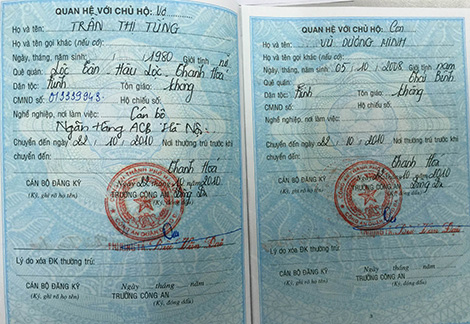 QUAN HỆ VỚI CHỦ HỘ: Vợ
Họ và tên: TRẦN THỊ TỪNG
Họ và tên gọi khác (nếu có):
Ngày, tháng, năm sinh: / /1980 Giới tính: nữ
Quê quán: Lộc Tân - Hậu Lộc - Thanh Hoá
Dân tộc: Kinh Tôn giáo: không
CMND số: 013339943 Hộ chiếu số:
Nghề nghiệp, nơi làm việc: Cán bộ
Ngân Hàng ACB Hà Nội
Chuyển đến ngày 22 . 10 . 2010 Nơi thường trú trước khi
chuyển đến:
Thanh Hoá
Ngày 22 tháng 10 năm 2010
CÁN BỘ ĐĂNG KÝ TRƯỞNG CÔNG AN
(Ký, ghi rõ họ tên) (Ký, đóng dấu)
Lý do xóa ĐK thường trú:
Ngày tháng năm
CÁN BỘ ĐĂNG KÝ TRƯỞNG CÔNG AN
(Ký, ghi rõ họ tên) (Ký, đóng dấu)
QUAN HỆ VỚI CHỦ HỘ: Con
Họ và tên: VŨ DƯƠNG MINH
Họ và tên gọi khác (nếu có):
Ngày, tháng, năm sinh: 05 / 10 / 2008 Giới tính: nam
Quê quán: Thái Bình
Dân tộc: Kinh Tôn giáo: không
CMND số: Hộ chiếu số:
Nghề nghiệp, nơi làm việc:
Chuyển đến ngày 22 . 10 . 2010 Nơi thường trú trước khi
chuyển đến:
Thanh Hoá
Ngày 22 tháng 10 năm 2010
CÁN BỘ ĐĂNG KÝ TRƯỞNG CÔNG AN
(Ký, ghi rõ họ tên) (Ký, đóng dấu)
Lý do xóa ĐK thường trú:
Ngày tháng năm
CÁN BỘ ĐĂNG KÝ TRƯỞNG CÔNG AN
(Ký, ghi rõ họ tên) (Ký, đóng dấu)